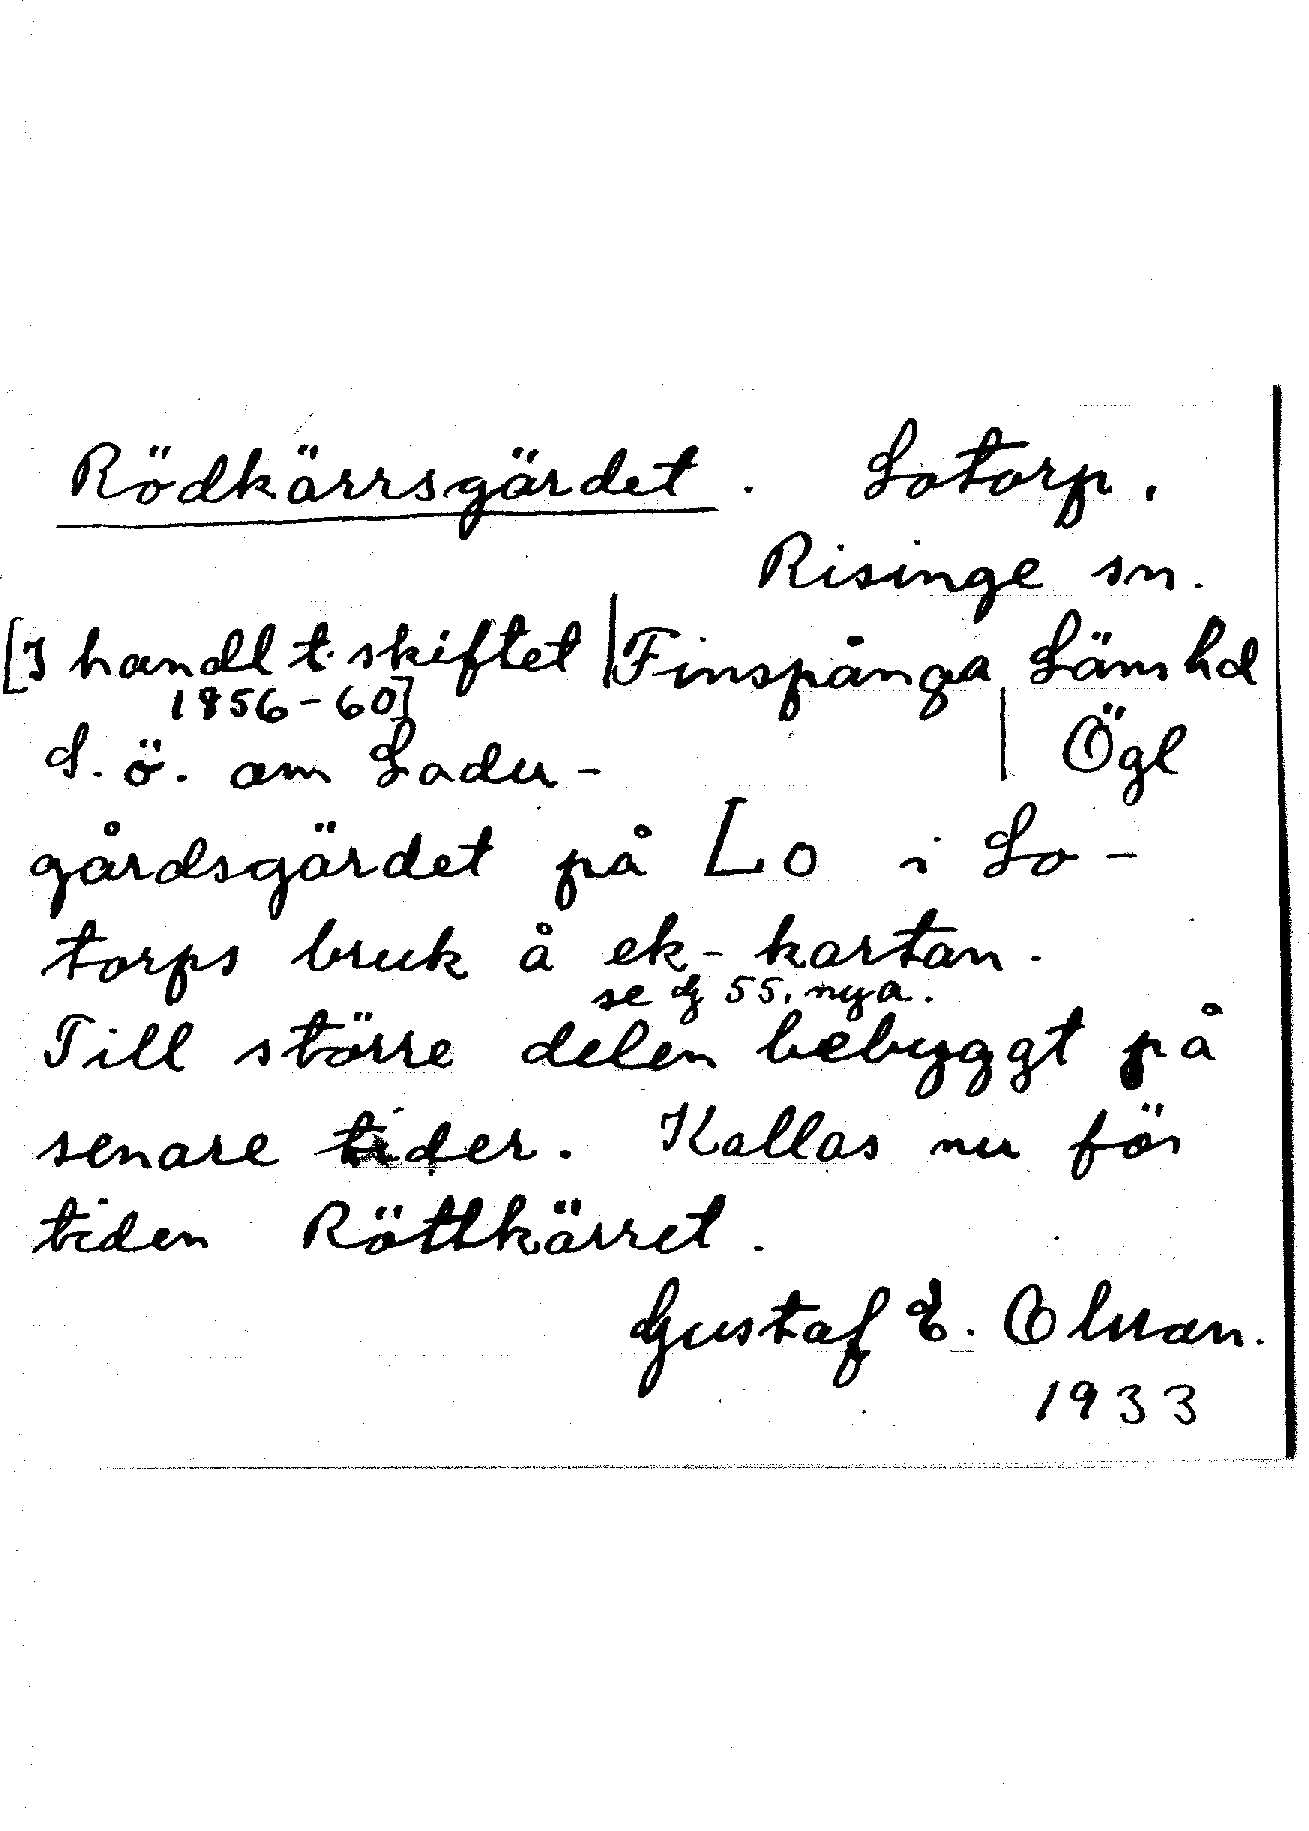 Rödkärrsgärdet. Lotorp.
Risinge sn.
[I handl t. skiftet | Finspånga Läns hd
1856-60]
S. ö. om Ladu- | Ögl
gårdsgärdet på Lo i Lo-
torps bruk å ek-kartan.
se G 55. nya.
Till större delen bebyggt på
senare tider. Kallas nu för
tiden Röttkärret.
Gustaf E. Olsson.
1933